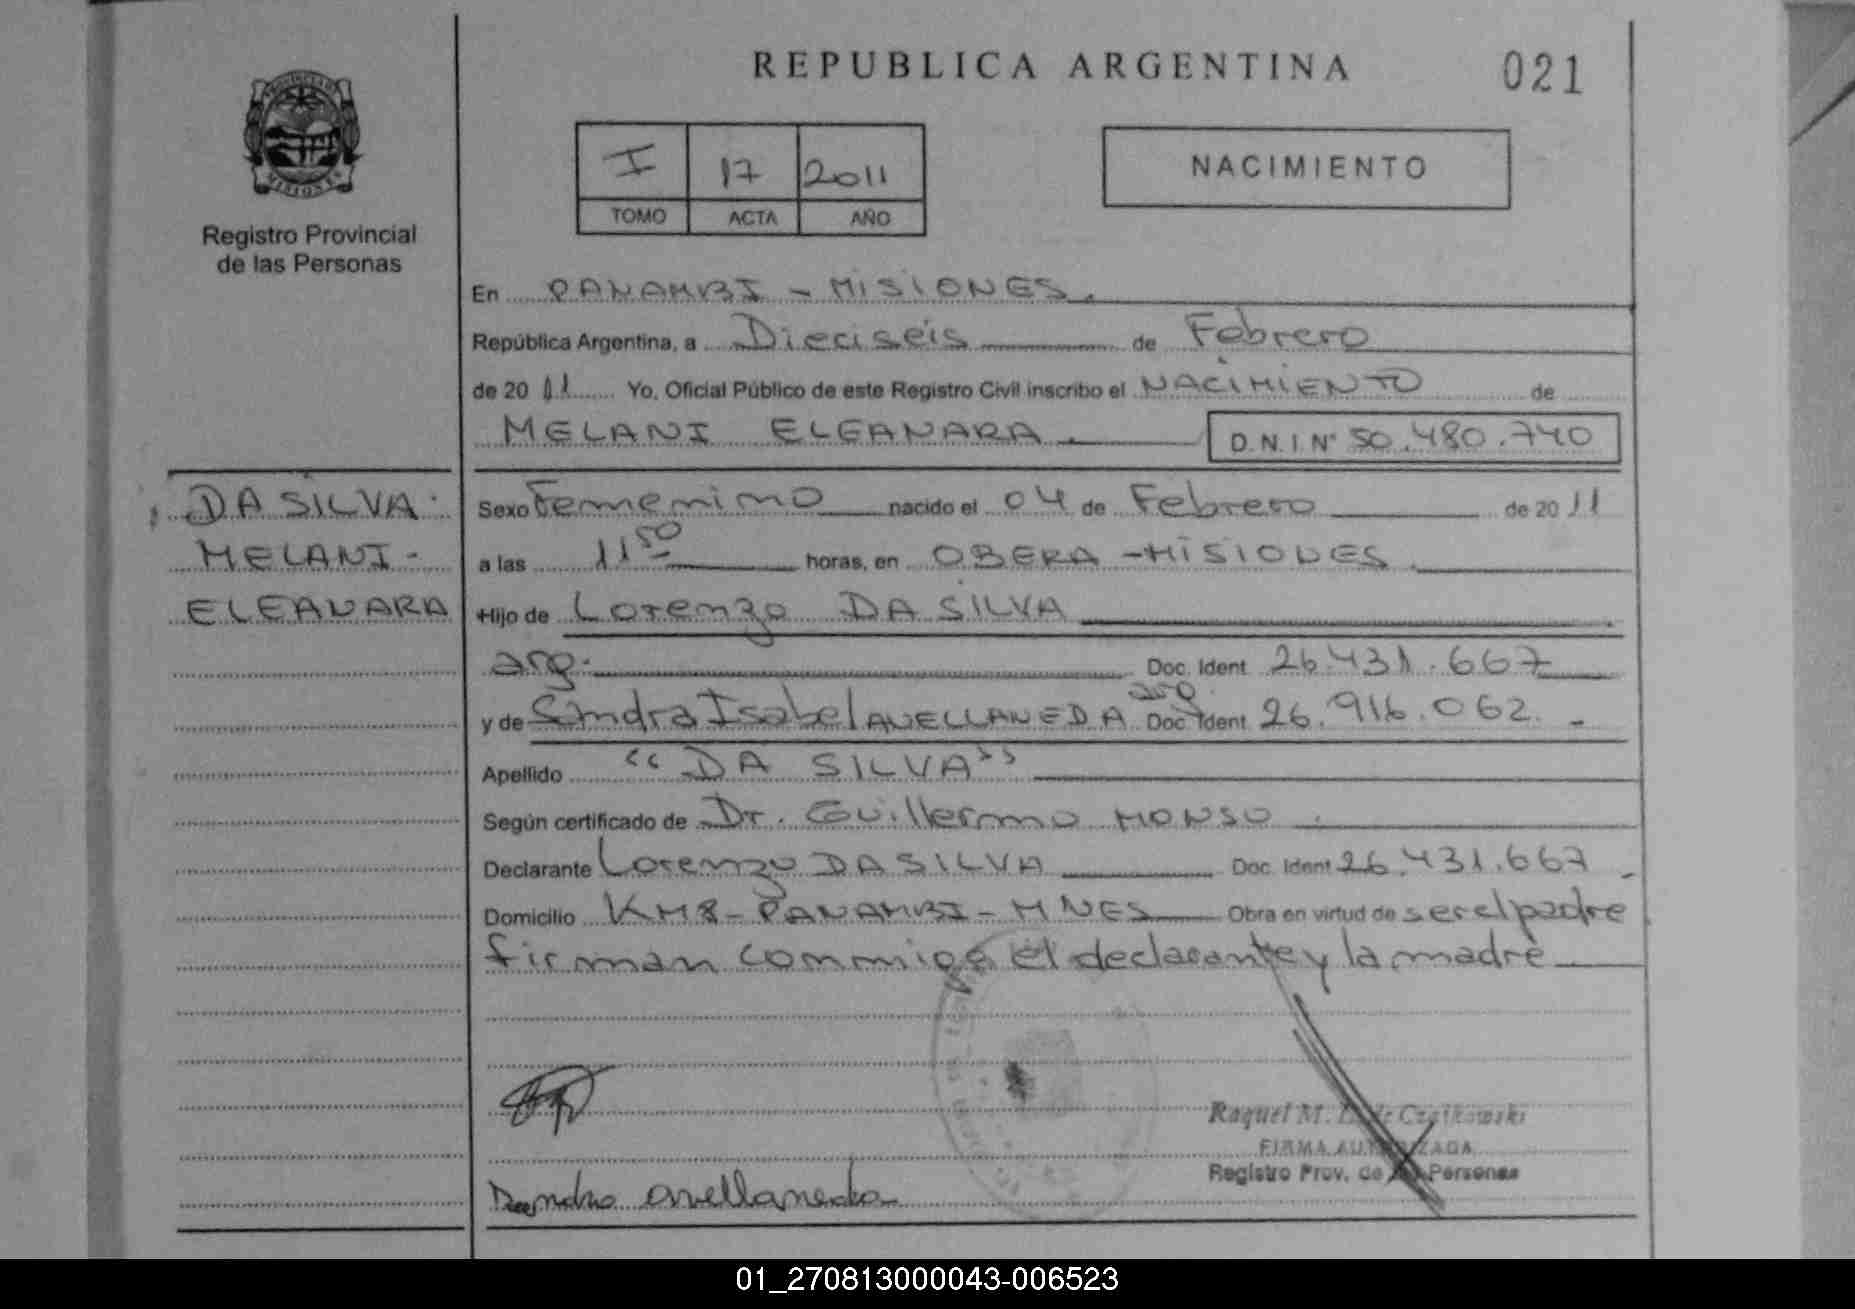 REPUBLICA ARGENTINA
021
PROVINCIA DE
MISIONES
Registro Provincial
de las Personas
I 17 2011
TOMO ACTA AÑO
NACIMIENTO
En PANAMBI - MISIONES.
República Argentina, a Dieciseis de Febrero
de 20 11 Yo, Oficial Público de este Registro Civil inscribo el NACIMIENTO de
MELANI ELEANARA. D.N.I. Nº 50.480.740
DA SILVA
MELANI -
ELEANARA
Sexo Femenino nacido el 04 de Febrero de 20 11
a las 11 50 horas, en OBERA - MISIONES
Hijo de Lorenzo DA SILVA
arg. Doc. Ident. 26.431.667
y de Sandra Isabel AVELLANEDA arg. Doc. Ident. 26.916.062. -
Apellido "DA SILVA"
Según certificado de Dr. Guillermo MONSO
Declarante Lorenzo DA SILVA Doc. Ident 26.431.667
Domicilio KM 8 - PANAMBI - MNES Obra en virtud de ser el padre
firman conmigo el declarante y la madre
Raquel M. de Czajkowski
FIRMA AUTORIZADA
Registro Prov. de las Personas
Sandra avellaneda
01_270813000043-006523